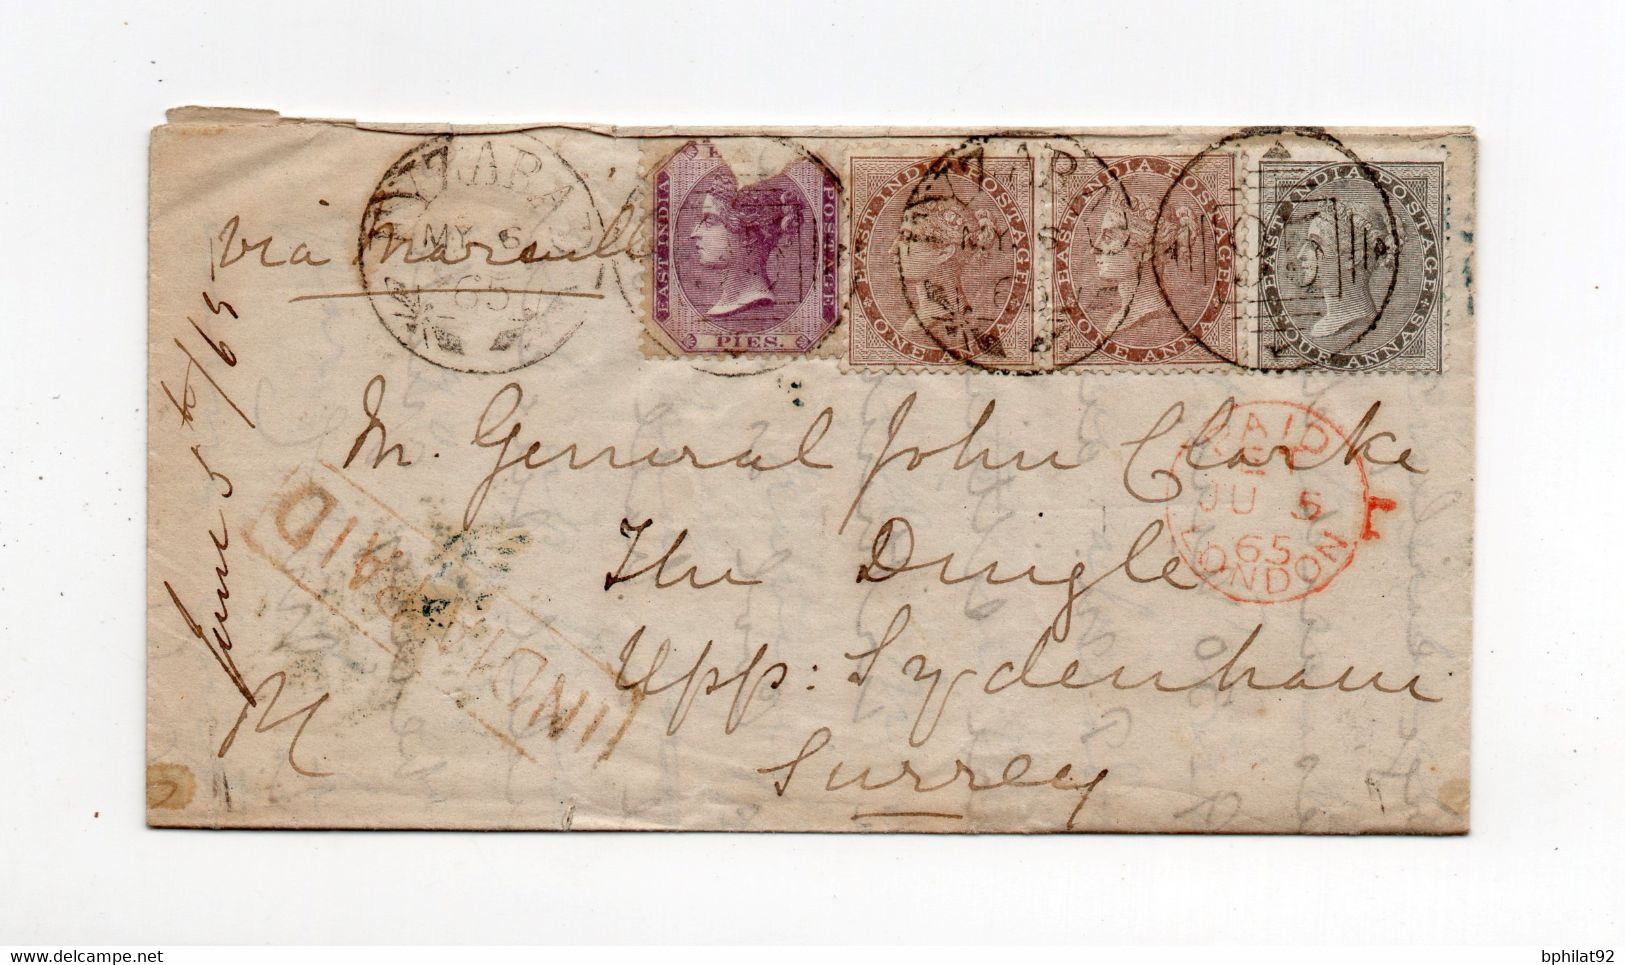 MY 6
65
via Marseille
EAST INDIA POSTAGE
PIES.
EAST INDIA POSTAGE
ONE ANNA
EAST INDIA POSTAGE
ONE ANNA
EAST INDIA POSTAGE
FOUR ANNAS
June 5th/65
M. General John Clarke
The Dingle
Upp: Sydenham
Surrey
PAID
JU 5
65
LONDON
INDIA PAID
bphilat92